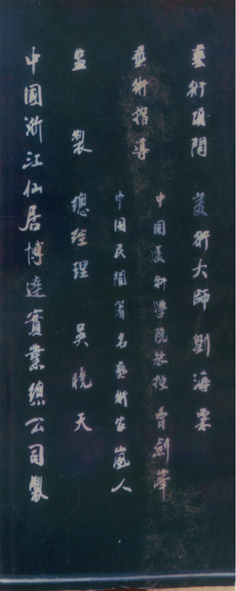 藝術顧問 美術大師劉海粟
中國美術學院教授曾劍峯
藝術指導
中國民間著名藝術家嵐人
監製 總經理 吳曉天
中國浙江仙居博達實業總公司製